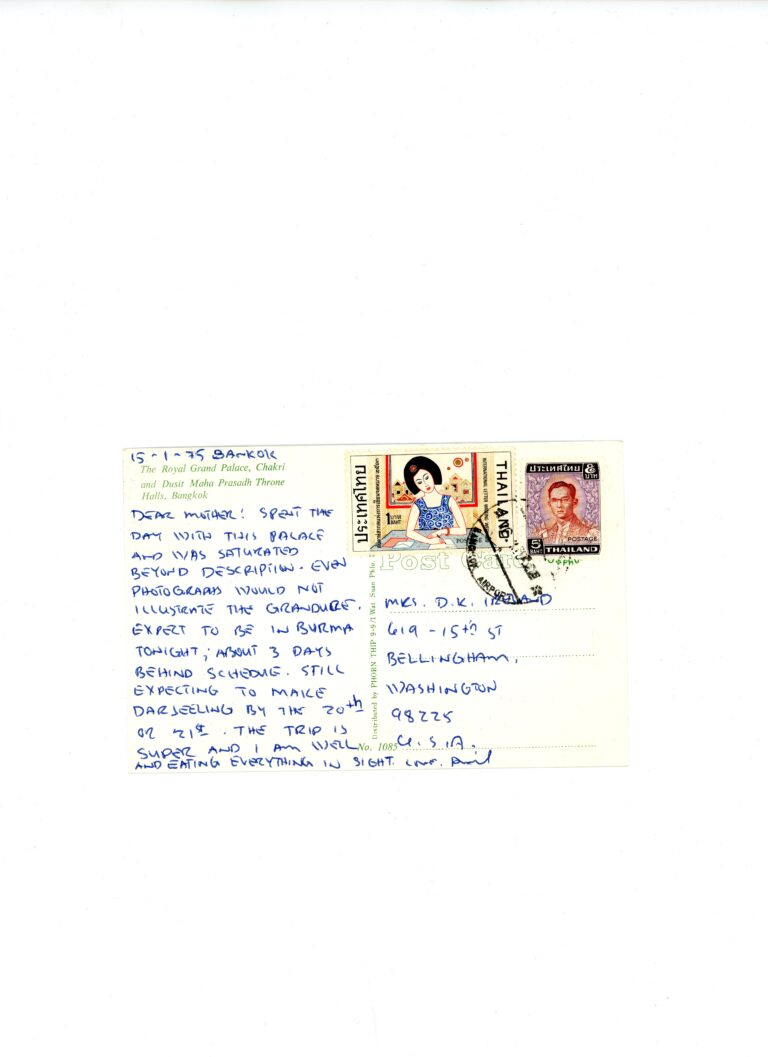 15-1-75 BANKOK
The Royal Grand Palace, Chakri
and Dusit Maha Prasadh Throne
Halls, Bangkok
DEAR MOTHER: SPENT THE
DAY WITH THIS PALACE
AND WAS SATURATED
BEYOND DESCRIPTION. EVEN
PHOTOGRAPHS WOULD NOT
ILLUSTRATE THE GRANDURE.
EXPERT TO BE IN BURMA
TONIGHT; ABOUT 3 DAYS
BEHIND SCHEDULE. STILL
EXPECTING TO MAKE
DARJEELING BY THE 20th
OR 21st. THE TRIP IS
SUPER AND I AM WELL
AND EATING EVERYTHING IN SIGHT. LOVE.
Distributed by PHORN THIP 9-9/1 Wat Suan Phlu.
No. 1085
ประเทศไทย
1 BAHT
POSTAGE
INTERNATIONAL LETTER WRITING
THAILAND
ประเทศไทย ๕ บาท
POSTAGE
5 BAHT THAILAND
AIRPORT
Post Card
MRS. D.K. IRELAND
619-15th ST
BELLINGHAM,
WASHINGTON
98225
U.S.A.